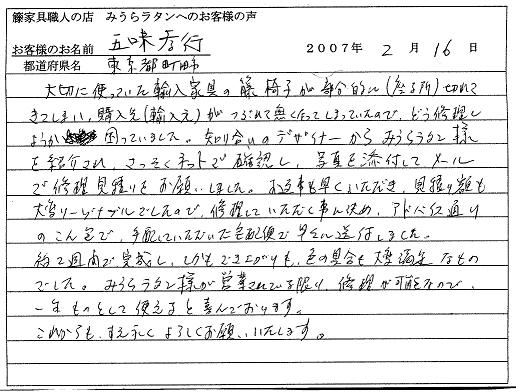 籐家具職人の店　みうらラタンへのお客様の声
お客様のお名前　五味孝行　2007年 2月 16日
都道府県名　東京都町田市
大切に使っていた輸入家具の籐椅子が部分的に(座る所)切れて
きてしまい、購入先(輸入元)がつぶれて無くなってしまっていたので、どう修理し
ようか困っていました。知り合いのデザイナーからみうらラタン様
を紹介され、さっそくネットで確認し、写真を添付してメール
で修理見積りをお願いしました。お返事も早くいただき、見積り額も
大変リーズナブルでしたので、修理していただく事に決め、アドバイス通り
のこん包で、手配していただいた宅配便で早々に送付しました。
約2週間で完成し、しかもでき上がりも、色の具合も大変満足なもの
でした。みうらラタン様が営業されている限り、修理が可能なので、
一生ものとして使えると喜んでおります。
これからも、すえ永くよろしくお願いいたします。